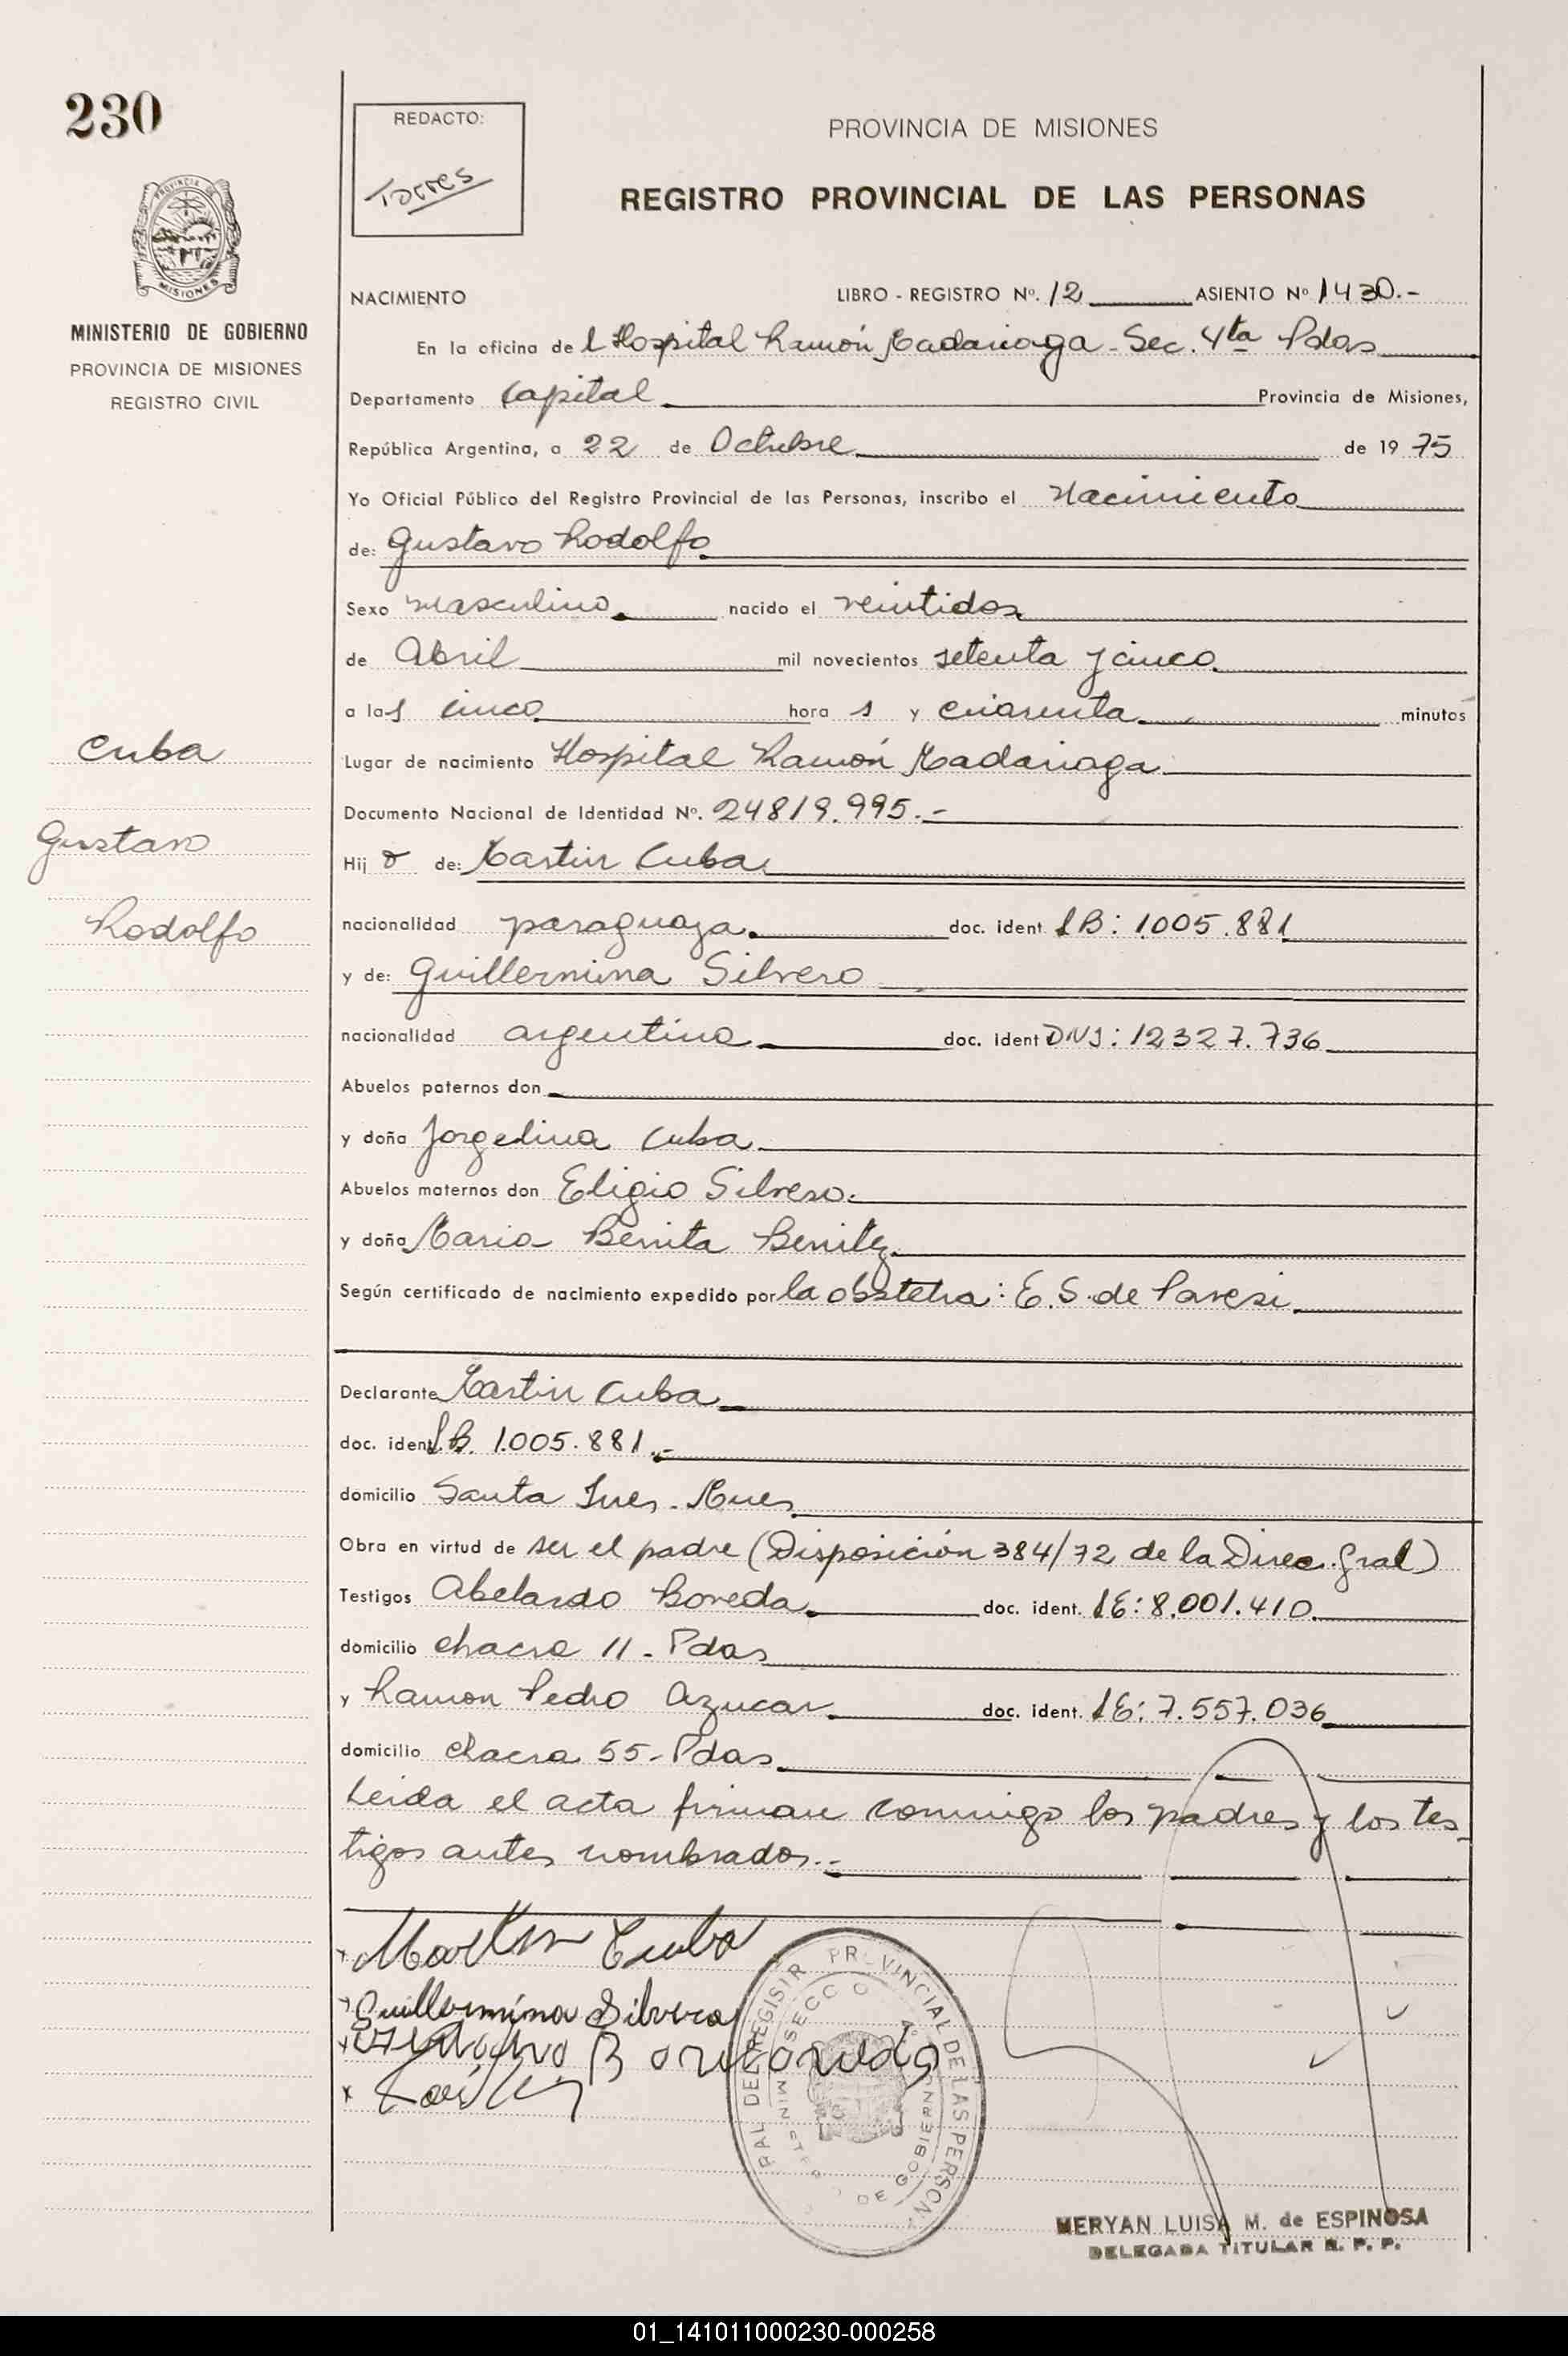 230
REDACTO:
Torres
PROVINCIA DE MISIONES
REGISTRO PROVINCIAL DE LAS PERSONAS
PROVINCIA DE
MISIONES
MINISTERIO DE GOBIERNO
PROVINCIA DE MISIONES
REGISTRO CIVIL
NACIMIENTO LIBRO - REGISTRO Nº. 12 ASIENTO Nº 1430.-
En la oficina del Hospital Ramón Madariaga - Sec. 4ta Pdas
Departamento Capital Provincia de Misiones,
República Argentina, a 22 de Octubre de 1975
Yo Oficial Público del Registro Provincial de las Personas, inscribo el Nacimiento
de: Gustavo Rodolfo
Sexo masculino. nacido el veintidos
de Abril mil novecientos setenta y cinco
a las cinco hora s y cuarenta minutos
Lugar de nacimiento Hospital Ramón Madariaga
Documento Nacional de Identidad Nº. 24819.995.-
Hijo de: Martin Cuba
nacionalidad paraguaya. doc. ident LB: 1.005.881
y de: Guillermina Silvero
nacionalidad argentina doc. ident DNI: 12.327.736
Abuelos paternos don
y doña Jorgelina Cuba
Abuelos maternos don Eligio Silvero.
y doña Maria Benita Benitez
Según certificado de nacimiento expedido por la obstetra: E. S. de Pavesi
Declarante Martin Cuba
doc. ident L.B. 1.005.881.-
domicilio Santa Ines - Mnes
Obra en virtud de ser el padre (Disposición 384/72 de la Direc. Gral)
Testigos Abelardo Boveda doc. ident. LE: 8.001.410
domicilio chacra 11 - Pdas
y Ramon Pedro Azucar doc. ident. LE: 7.557.036
domicilio chacra 55 - Pdas
Leida el acta firman conmigo los padres y los tes-
tigos antes nombrados.-
Cuba
Gustavo
Rodolfo
Martin Cuba
Guillermina Silvero
PROVINCIAL DE LAS PERSON
MERYAN LUISA M. de ESPINOSA
DELEGADA TITULAR R. P. P.
01_141011000230-000258